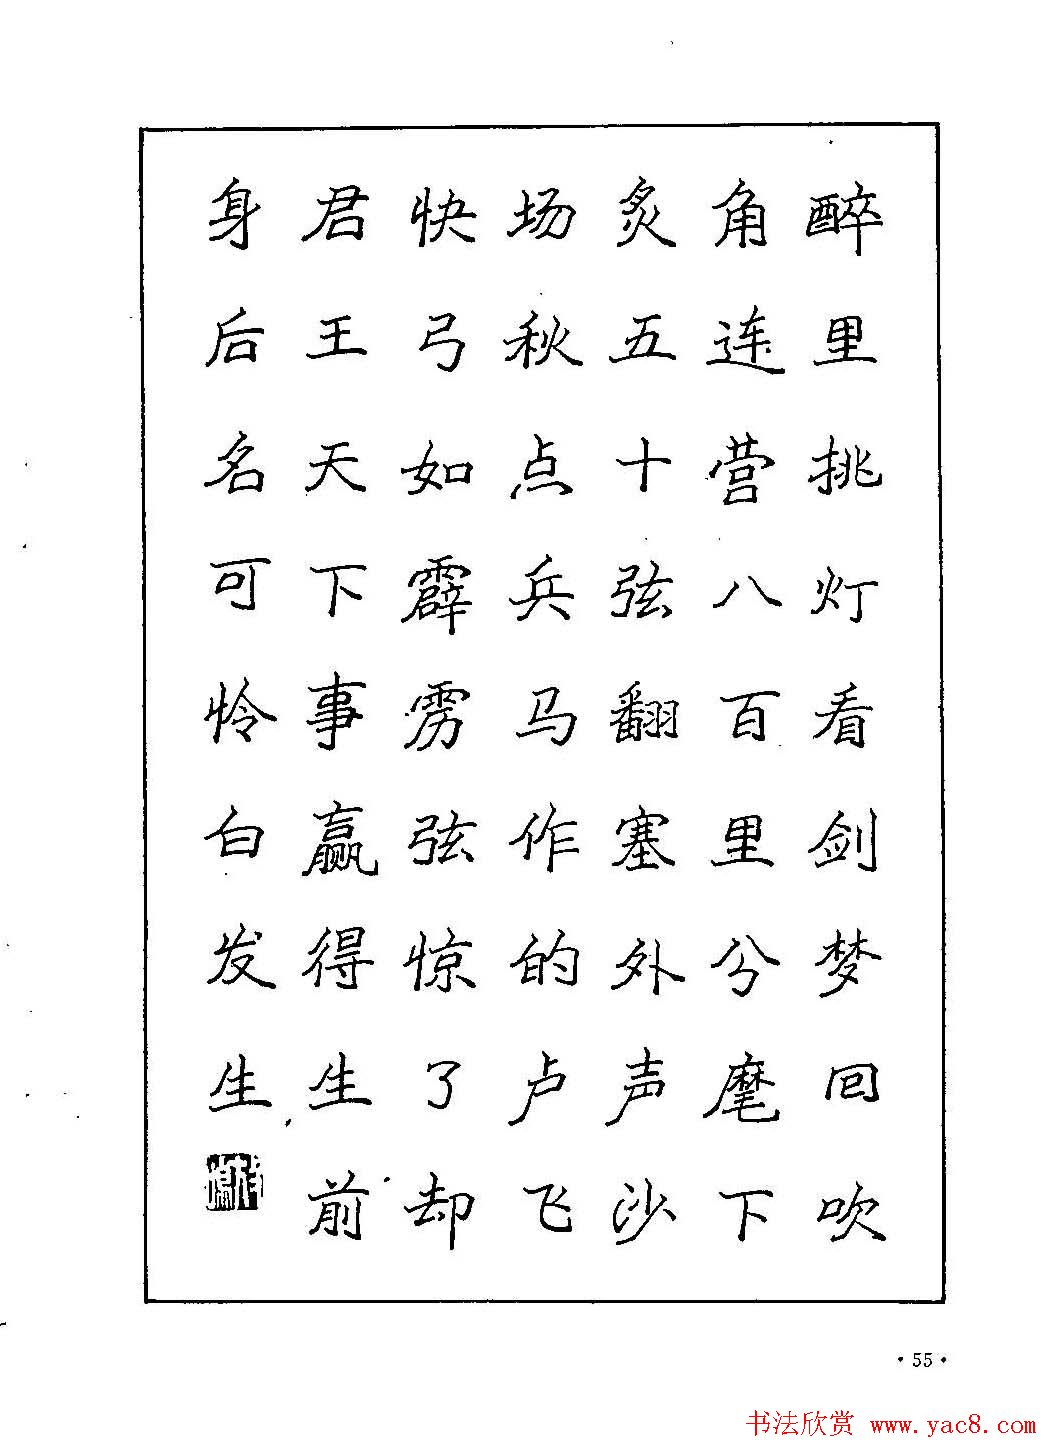 醉里挑灯看剑梦回吹
角连营八百里兮麾下
炙五十弦翻塞外声沙
场秋点兵马作的卢飞
快弓如霹雳弦惊了却
君王天下事赢得生前
身后名可怜白发生
·55·
书法欣赏 www.yac8.com